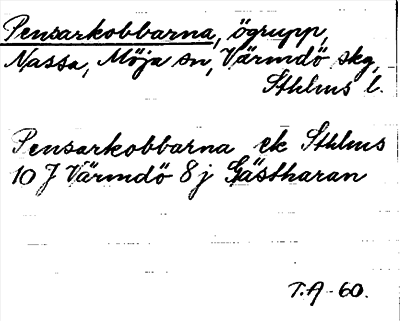 Pensarkobbarna, ögrupp,
Nassa, Möja sn, Värmdö skg,
Sthlms l.
Pensarkobbarna ek Sthlms
10 J Värmdö 8 j Gästharan
T.A-60.